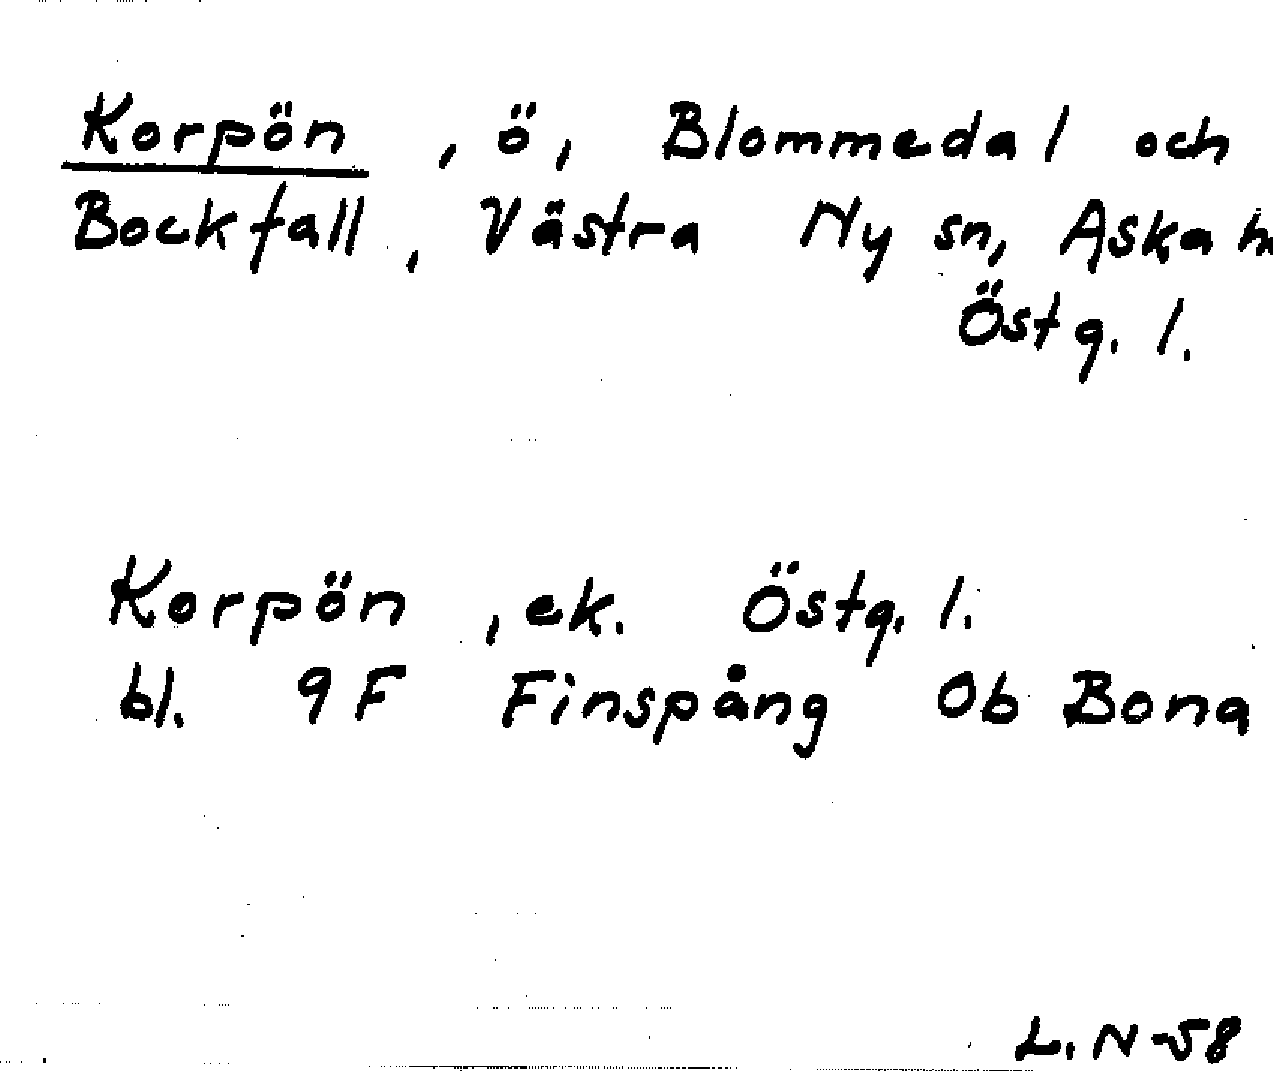 Korpön , ö, Blommedal och
Bockfall, Västra Ny sn, Aska h
Östg. l.
Korpön , ek. Östg. l.
bl. 9F Finspång 0b Bona
L. N-58